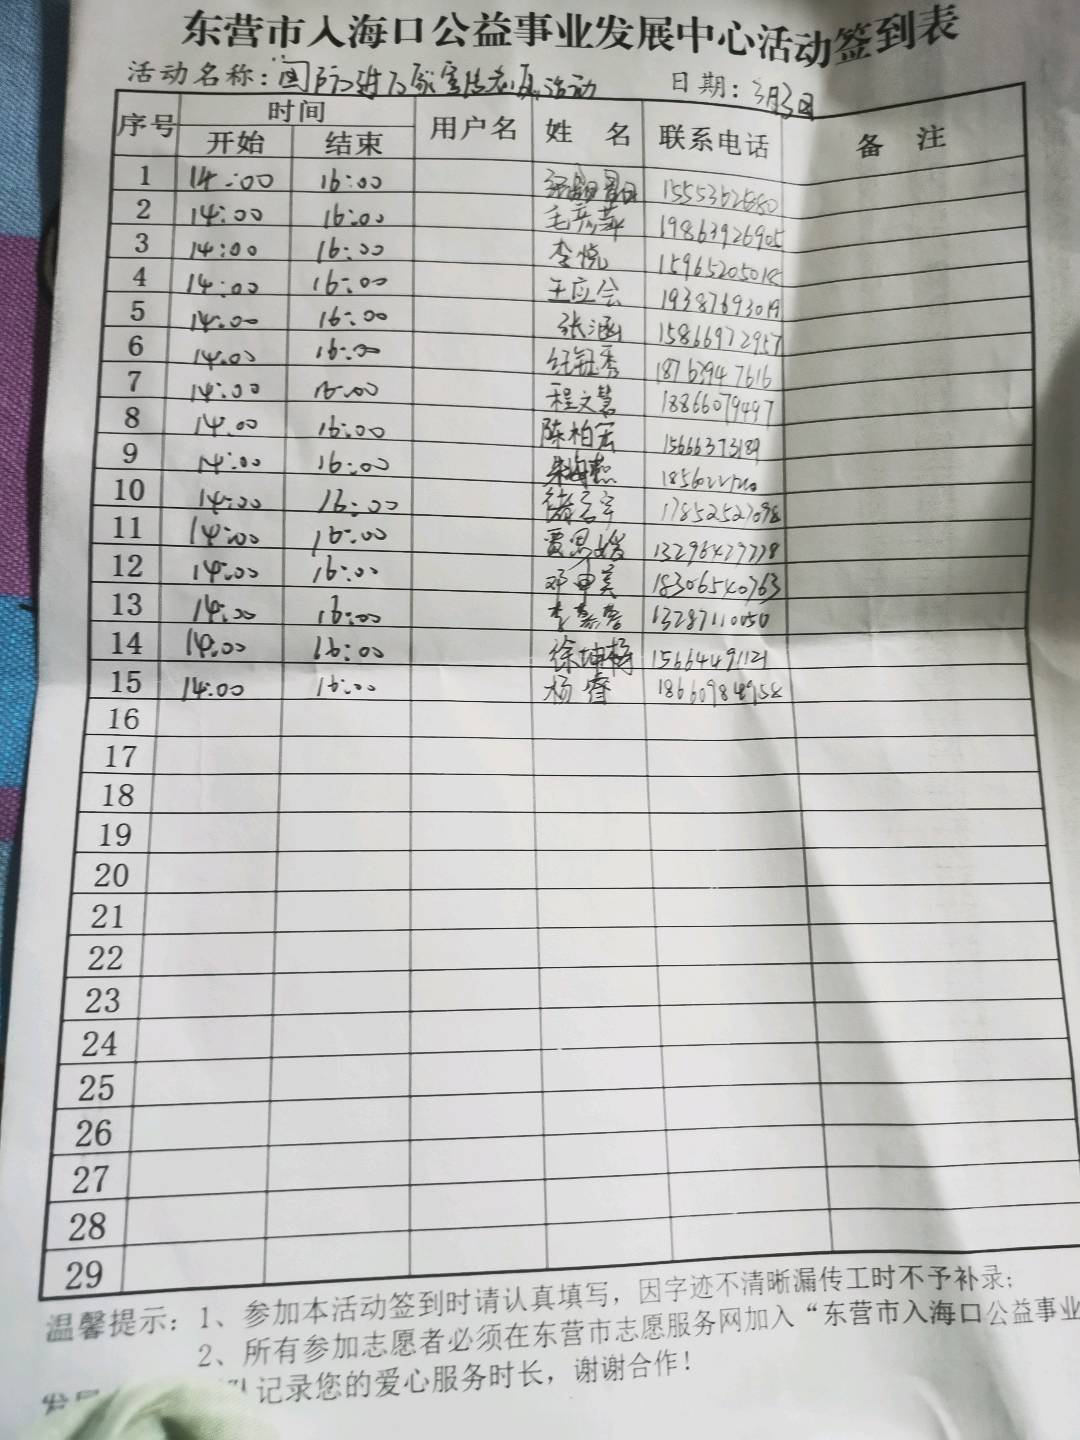 东营市入海口公益事业发展中心活动签到表
活动名称： 活动 日期：3月3日
序号 时间 用户名 姓名 联系电话 备注
开始 结束
1 14:00 16:00
2 14:00 16:00 毛彦萍 19863926905
3 14:00 16:00 李悦
4 14:00 16:00 王应会
5 14:00 16:00 张涵 15866972957
6 14:00 16:00 18763947616
7 14:00 16:00 程文慧 18866079497
8 14:00 16:00 陈柏宏 15666373189
9 14:00 16:00
10 14:00 16:00 17852527098
11 14:00 16:00 贾思媛 13296479778
12 14:00 16:00 邓申美 18306540763
13 14:00 16:00 13287110050
14 14:00 16:00 徐坤杨 15664491121
15 14:00 16:00 杨睿 18660984958
16
17
18
19
20
21
22
23
24
25
26
27
28
29
温馨提示：1、参加本活动签到时请认真填写，因字迹不清晰漏传工时不予补录；
2、所有参加志愿者必须在东营市志愿服务网加入“东营市入海口公益事业
发展 队记录您的爱心服务时长，谢谢合作！